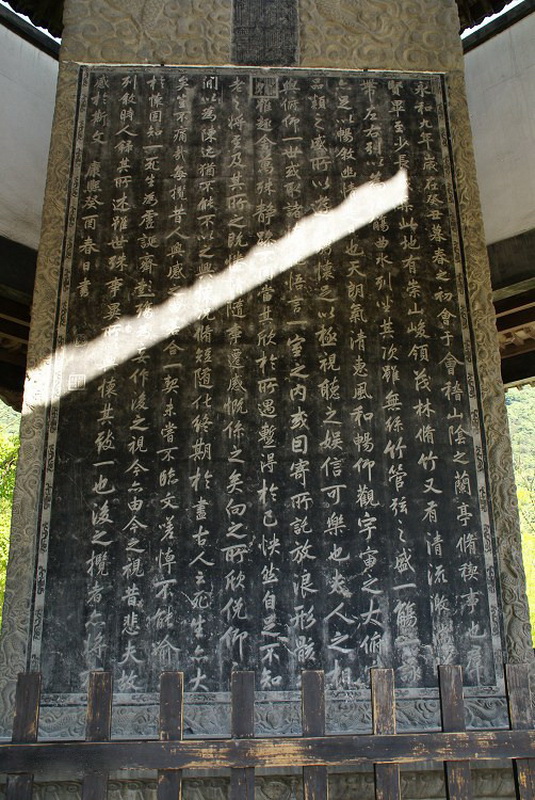 永和九年歲在癸丑暮春之初會于會稽山陰之蘭亭脩稧事也羣
賢畢至少長集此地有崇山峻領茂林脩竹又有清流激
帶左右引以為觴曲水列坐其次雖無絲竹管弦之盛一觴一詠
足以暢敘幽情也天朗氣清惠風和暢仰觀宇宙之大俯
品類之盛所以遊懷足以極視聽之娛信可樂也夫人之相
與俯仰一世或取諸悟言一室之內或因寄所託放浪形骸
雖趣舍萬殊靜躁同當其欣於所遇暫得於己怏然自足不知
老之將至及其所之既惓隨事遷感慨係之矣向之所欣俛仰之
間以為陳迹猶不能不以之興懷況脩短隨化終期於盡古人云死生亦大
矣豈不痛哉每攬昔人興感之若合一契未嘗不臨文嗟悼不能喻
於懷固知一死生為虛誕齊彭殤為妄作後之視今亦由今之視昔悲夫故
列敘時人錄其所述雖世殊事異所懷其致一也後之攬者亦將有
感於斯文 康熙癸酉春日書